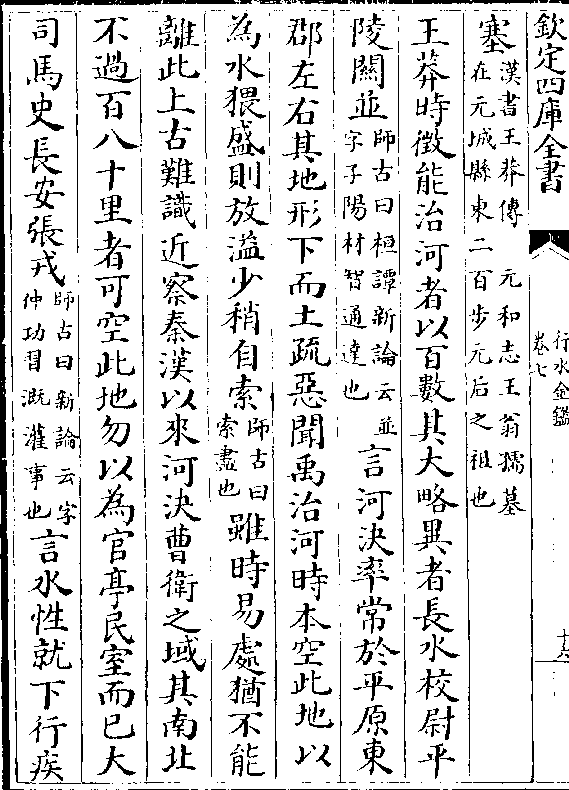 欽定四庫全書
行水金鑑
卷七
十六
塞漢書王莽傳　元和志王翁孺墓
在元城縣東二百步元后之祖也
王莽時徵能治河者以百數其大略異者長水校尉平
陵關並師古曰桓譚新論云並
字子陽材智通達也言河決率常於平原東
郡左右其地形下而土疏惡聞禹治河時本空此地以
為水猥盛則放溢少稍自索師古曰
索盡也雖時易處猶不能
離此上古難識近察秦漢以來河決曹衛之域其南北
不過百八十里者可空此地勿以為官亭民室而已大
司馬史長安張戎師古曰新論云字
仲功習溉灌事也言水性就下行疾